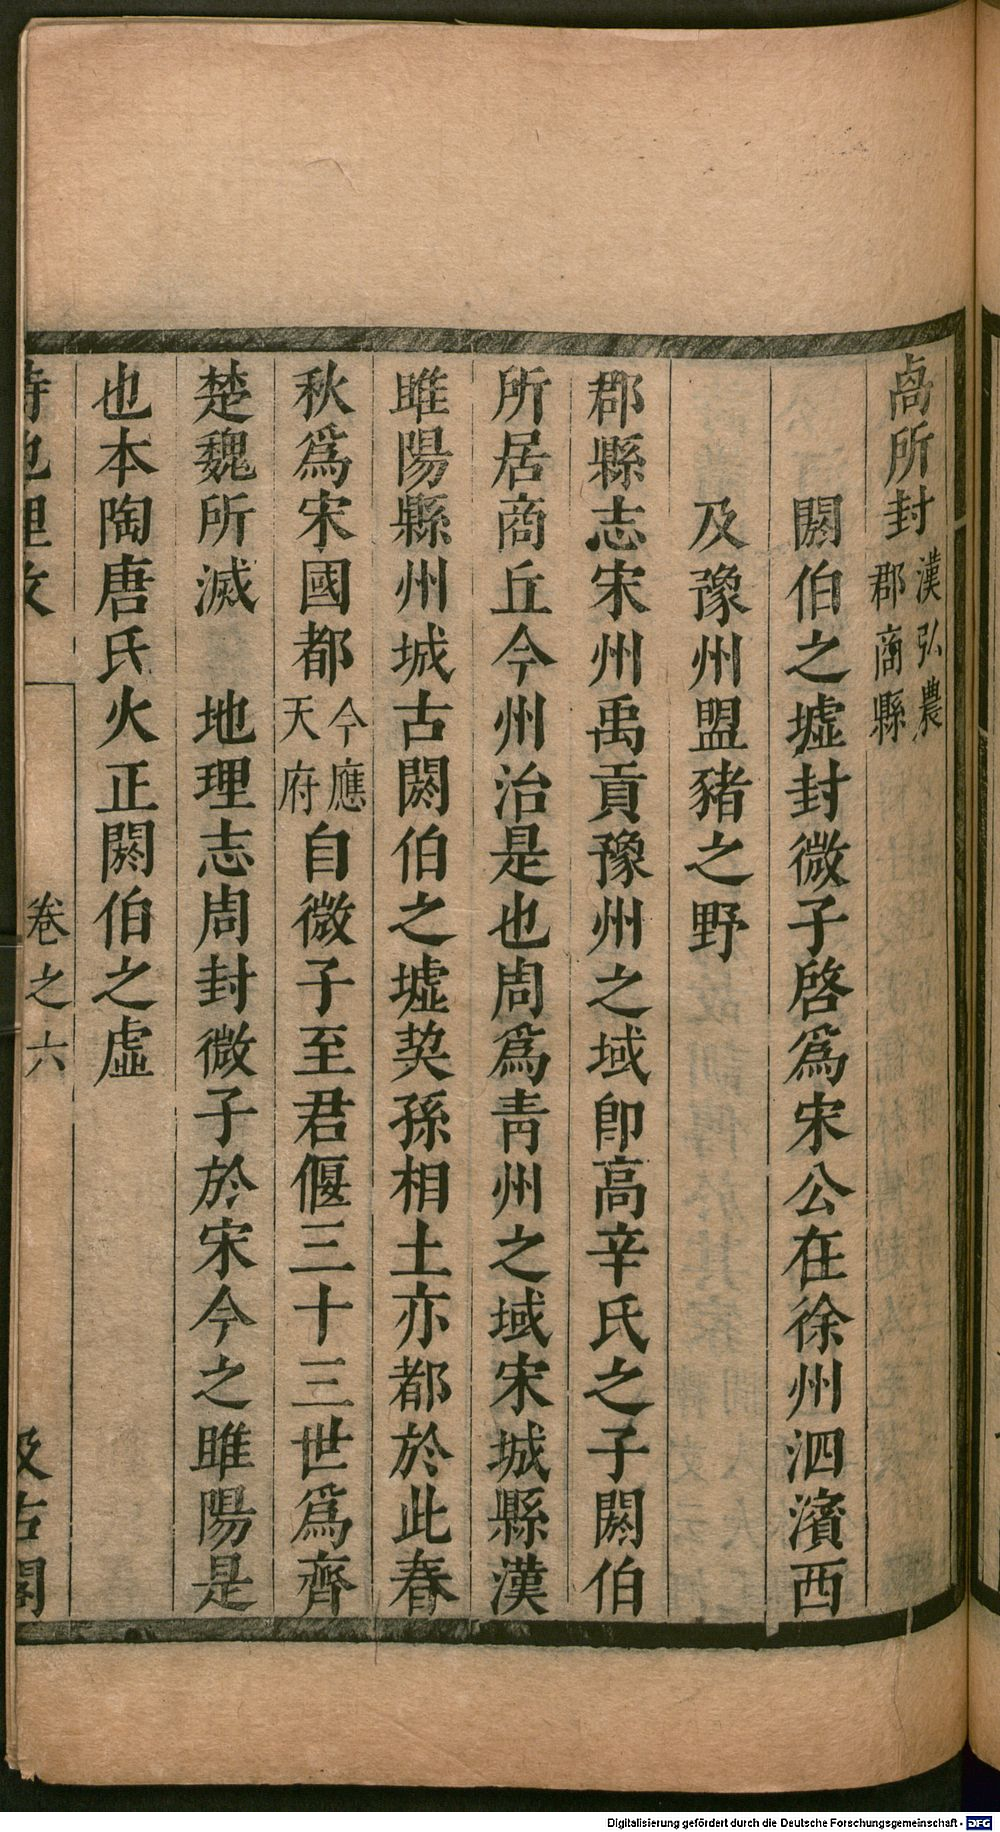 卨所封漢弘農郡商縣
閼伯之墟封微子啓爲宋公在徐州泗濱西
及豫州盟豬之野
郡縣志宋州禹貢豫州之域卽高辛氏之子閼伯
所居商丘今州治是也周爲青州之域宋城縣漢
睢陽縣州城古閼伯之墟契孫相土亦都於此春
秋爲宋國都今應天府自微子至君偃三十三世爲齊
楚魏所滅　地理志周封微子於宋今之睢陽是
也本陶唐氏火正閼伯之虛
詩地理攷　卷之六　汲古閣
Digitalisierung gefördert durch die Deutsche Forschungsgemeinschaft - DFG